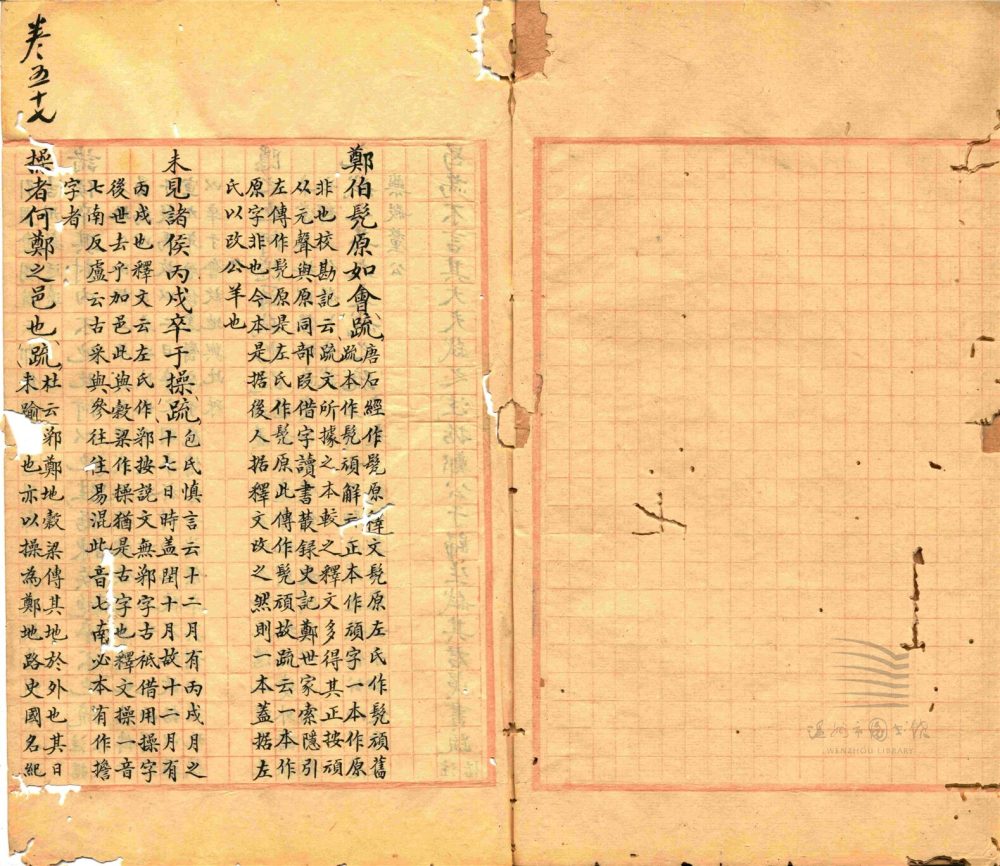 卷五十七
鄭伯髡原如會疏
唐石經作髡原釋文髡原左氏作髡頑舊
疏本作髡頑解云正本作頑字一本作原
非也校勘記云疏文所據之本較之釋文多得其正按頑
从元聲與原同部段借字讀書叢録史記鄭世家索隱引
左傳作髡原是左氏作髡原此傳作髡頑故疏云一本作
原字非也今本是据後人据釋文改之然則一本蓋据左
氏以改公羊也
未見諸侯丙戌卒于操疏
包氏慎言云十二月有丙戌月之
十七日時蓋閏十月故十二月有
丙戌也釋文云左氏作鄵按說文無鄵字古祇借用操字
後世去乎加邑此與穀梁作操猶是古字也釋文操一音
七南反盧云古采與參往往易混此音七南必本有作摻
字者
操者何鄭之邑也疏
杜云鄵鄭地穀梁傳其地於外也其日
未踰也亦以操為鄭地路史國名紀
温州市图书馆
WENZHOU LIBRARY